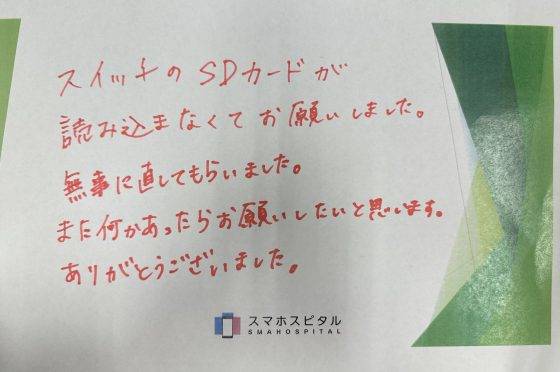 スイッチのSDカードが
読み込まなくてお願いしました。
無事に直してもらいました。
また何かあったらお願いしたいと思います。
ありがとうございました。
スマホスピタル
SMAHOSPITAL